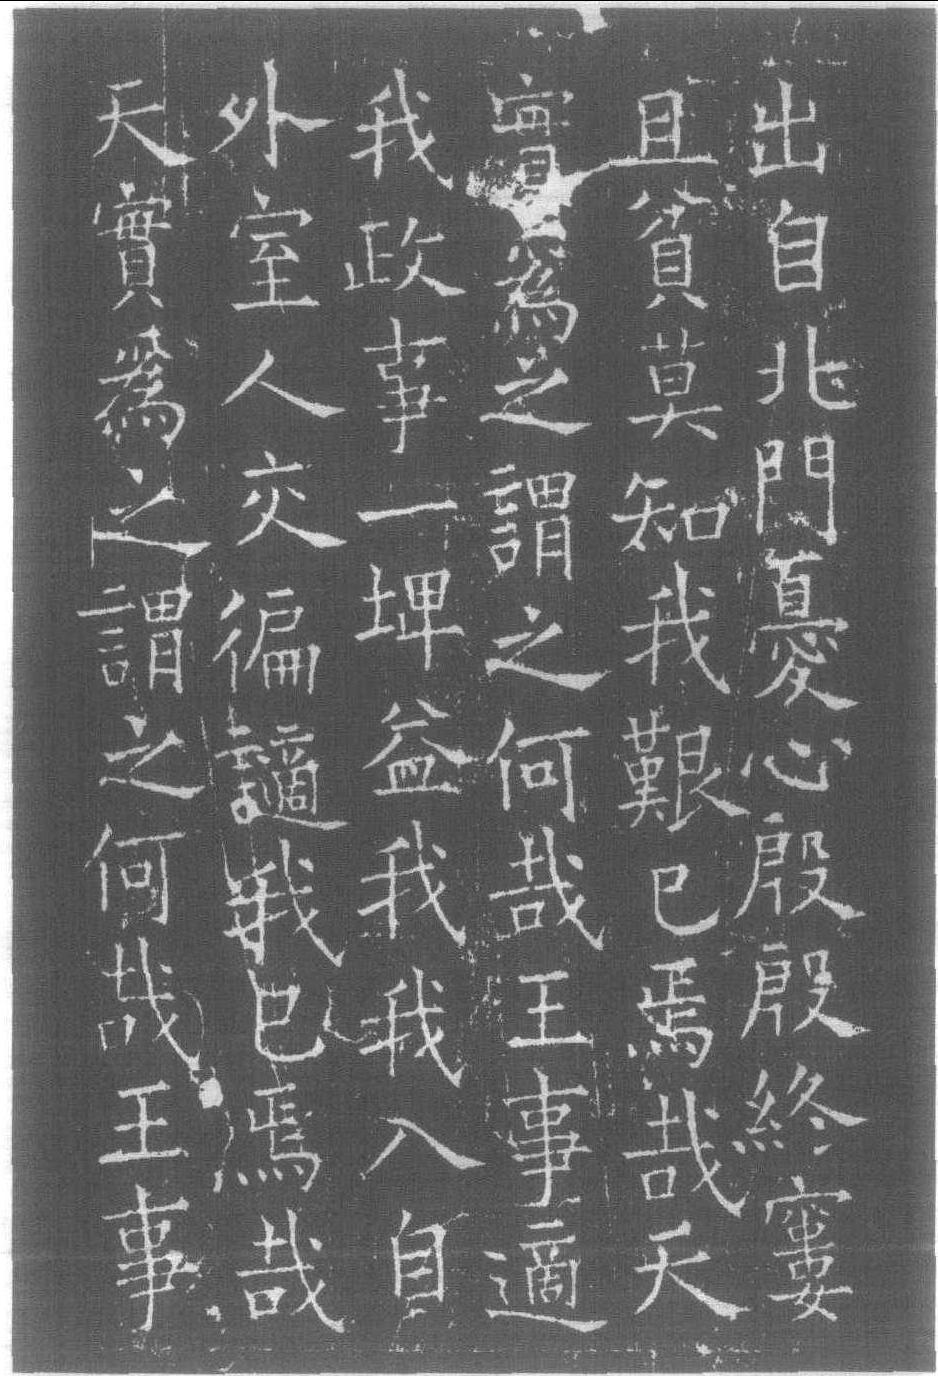 出自北門憂心殷殷終窶
且貧莫知我艱已焉哉天
實為之謂之何哉王事適
我政事一埤益我我入自
外室人交徧讁我已焉哉
天實為之謂之何哉王事